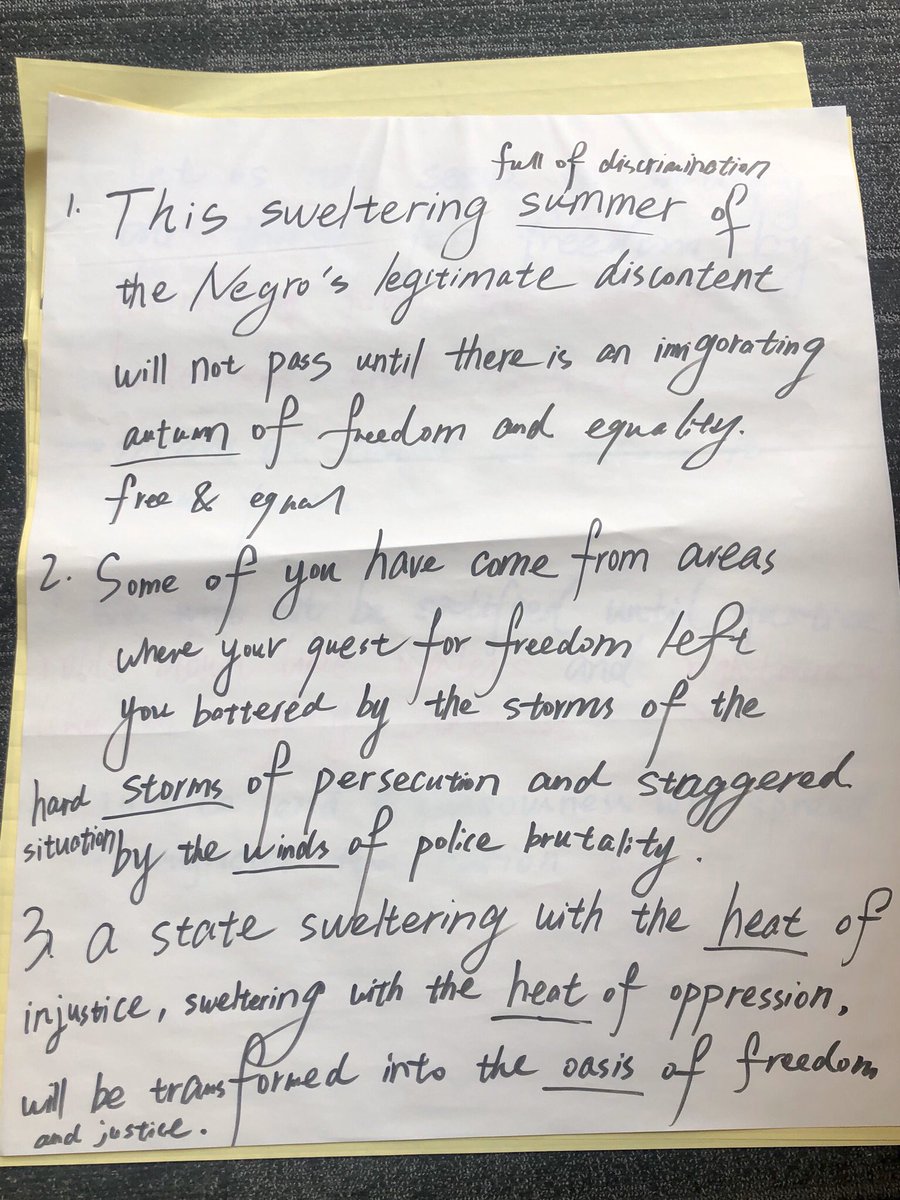 full of discrimination
1. This sweltering summer of
the Negro's legitimate discontent
will not pass until there is an invigorating
autumn of freedom and equality.
free & equal
2. Some of you have come from areas
where your quest for freedom left
you battered by the storms of the
hard storms of persecution and staggered
situation by the winds of police brutality.
3. a state sweltering with the heat of
injustice, sweltering with the heat of oppression,
will be transformed into the oasis of freedom
and justice.